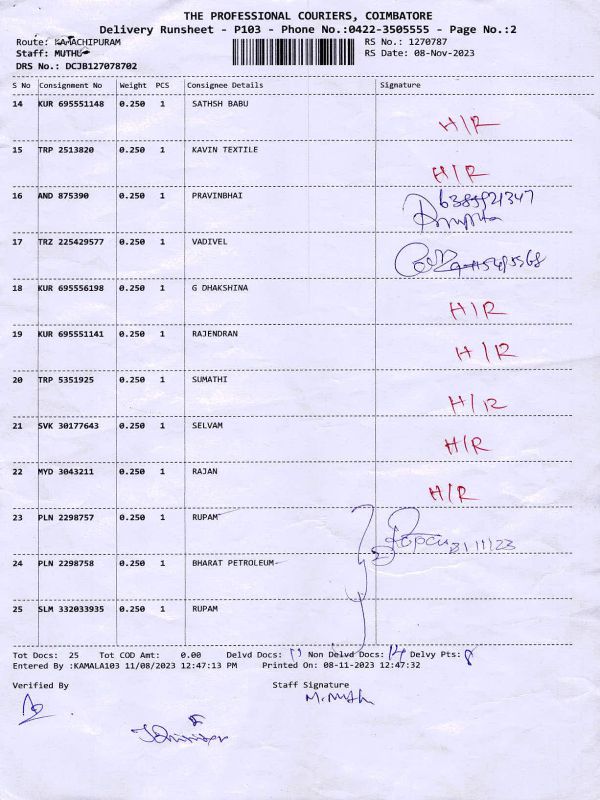 THE PROFESSIONAL COURIERS, COIMBATORE
Delivery Runsheet - P103 - Phone No.:0422-3505555 - Page No.:2
Route: KAMACHIPURAM RS No.: 1270787
Staff: MUTHU RS Date: 08-Nov-2023
DRS No.: DCJB127078702
S No Consignment No Weight PCS Consignee Details Signature
14 KUR 695551148 0.250 1 SATHSH BABU H/R
15 TRP 2513820 0.250 1 KAVIN TEXTILE H/R
16 AND 875390 0.250 1 PRAVINBHAI
17 TRZ 225429577 0.250 1 VADIVEL
18 KUR 695556198 0.250 1 G DHAKSHINA H/R
19 KUR 695551141 0.250 1 RAJENDRAN H/R
20 TRP 5351925 0.250 1 SUMATHI H/R
21 SVK 30177643 0.250 1 SELVAM H/R
22 MYD 3043211 0.250 1 RAJAN H/R
23 PLN 2298757 0.250 1 RUPAM
24 PLN 2298758 0.250 1 BHARAT PETROLEUM
25 SLM 332033935 0.250 1 RUPAM
Tot Docs: 25 Tot COD Amt: 0.00 Delvd Docs: 11 Non Delvd Docs: 14 Delvy Pts: 8
Entered By :KAMALA103 11/08/2023 12:47:13 PM Printed On: 08-11-2023 12:47:32
Verified By Staff Signature
M. Muth